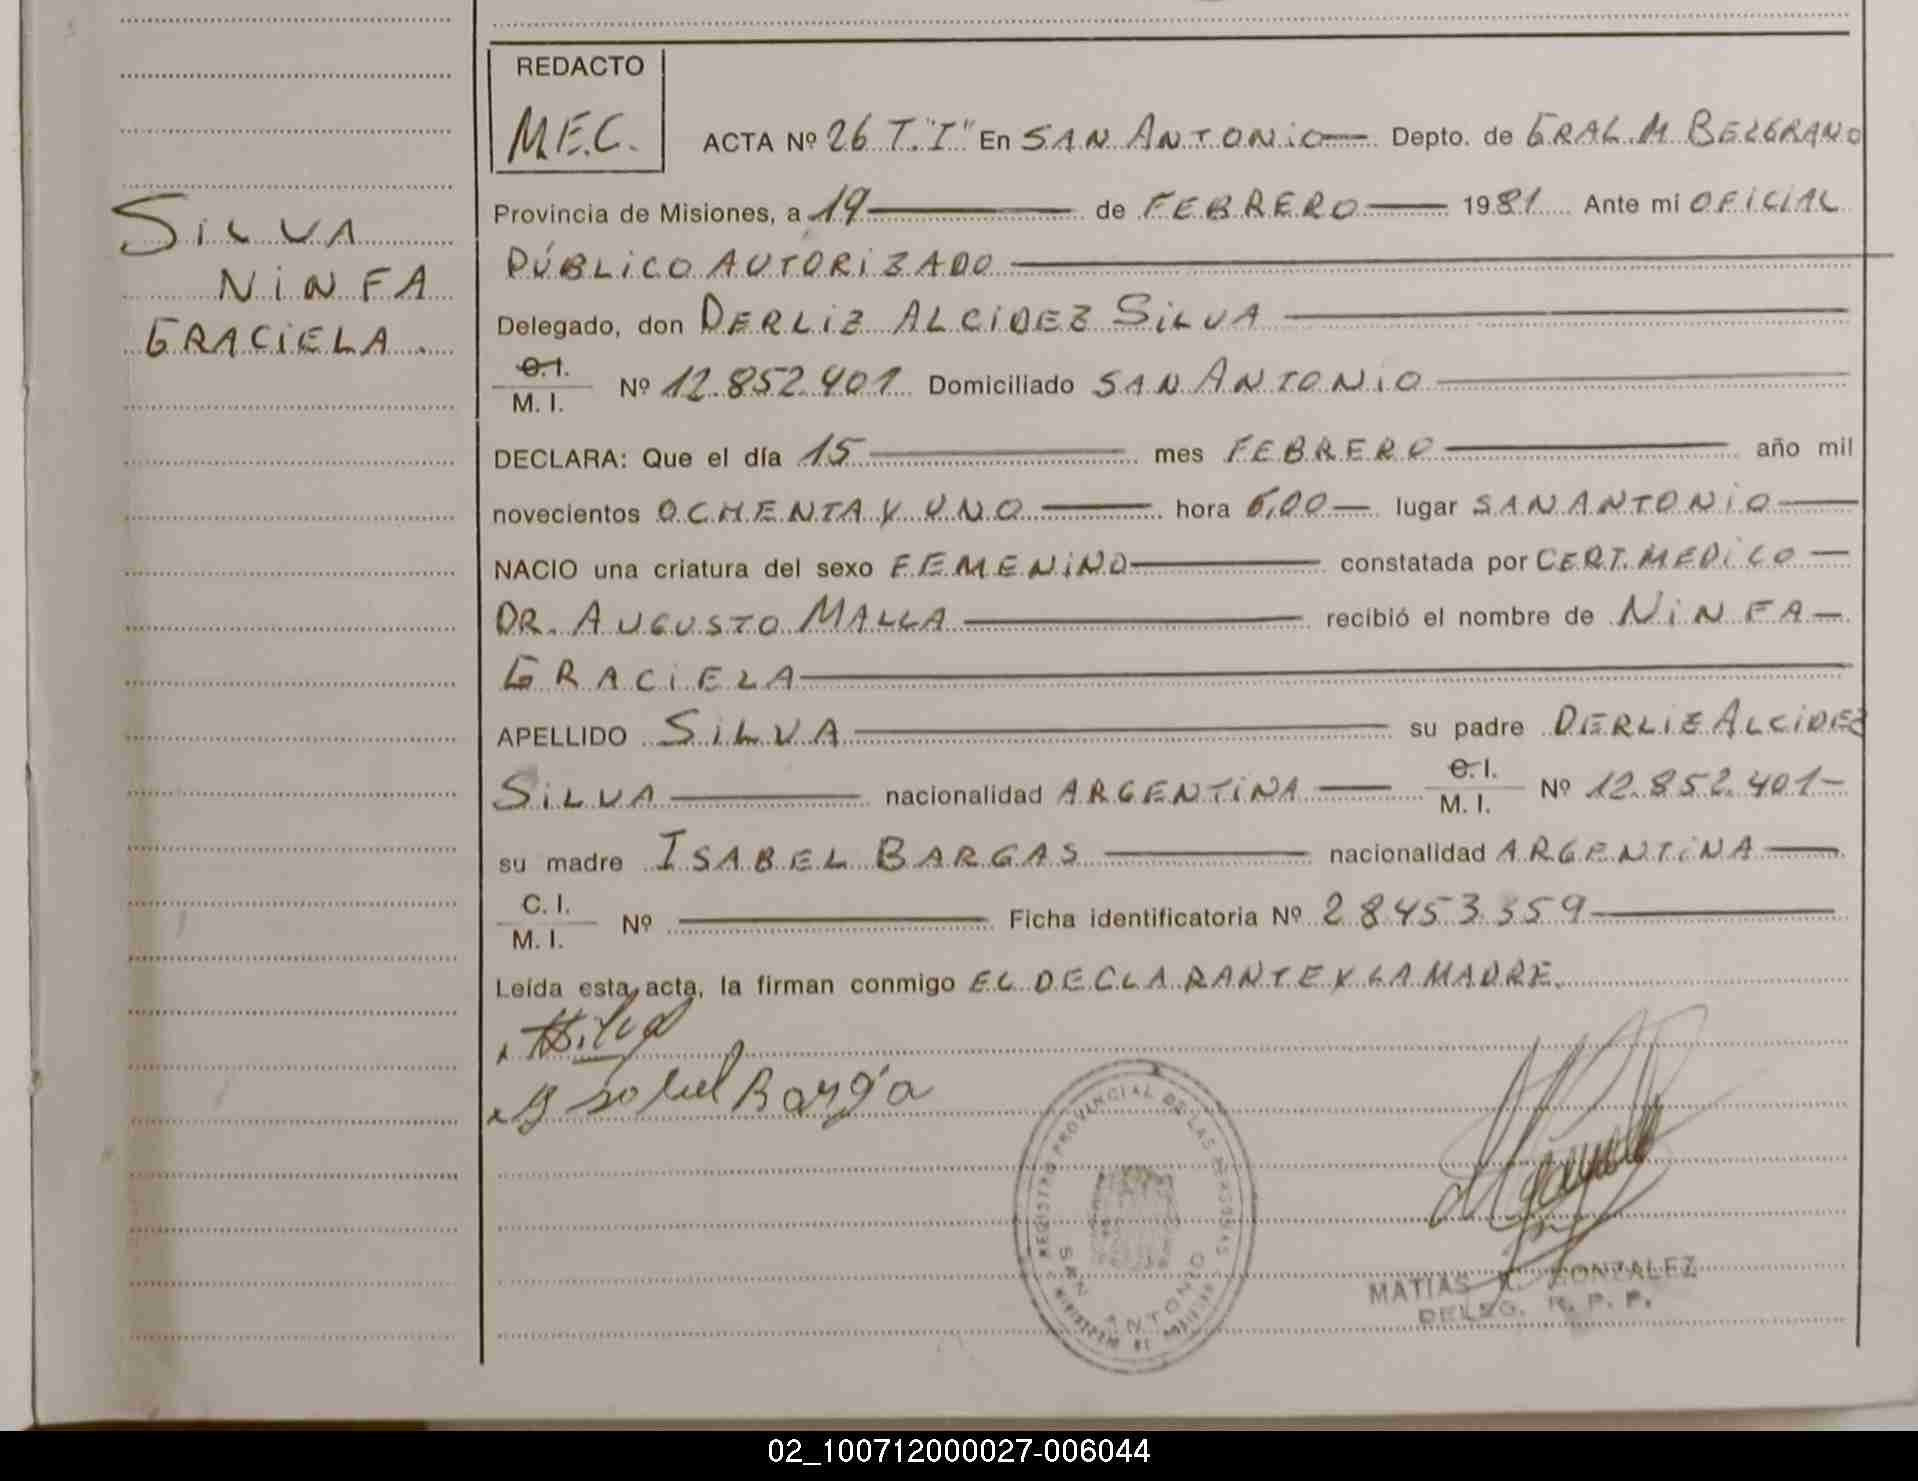 REDACTO
M.E.C.
ACTA Nº 26 T. "I" En SAN ANTONIO Depto. de GRAL. M. BELGRANO
Provincia de Misiones, a 19 de FEBRERO 1981 Ante mi OFICIAL
PÚBLICO AUTORIZADO
Delegado, don DERLIZ ALCIDEZ SILVA
C. I.
M. I. Nº 12.852.401 Domiciliado SAN ANTONIO
DECLARA: Que el día 15 mes FEBRERO año mil
novecientos OCHENTA Y UNO hora 6,00 lugar SAN ANTONIO
NACIO una criatura del sexo FEMENINO constatada por CERT. MEDICO
DR. AUGUSTO MALLA recibió el nombre de NINFA
GRACIELA
APELLIDO SILVA su padre DERLIZ ALCIDEZ
SILVA nacionalidad ARGENTINA C. I.
M. I. Nº 12.852.401
su madre ISABEL BARGAS nacionalidad ARGENTINA
C. I.
M. I. Nº Ficha identificatoria Nº 28453359
Leída esta acta, la firman conmigo EL DECLARANTE Y LA MADRE.
SILVA
NINFA
GRACIELA.
REGISTRO PROVINCIAL DE LAS PERSONAS
SAN ANTONIO
MATIAS GONZALEZ
DELEG. R. P. P.
02_100712000027-006044